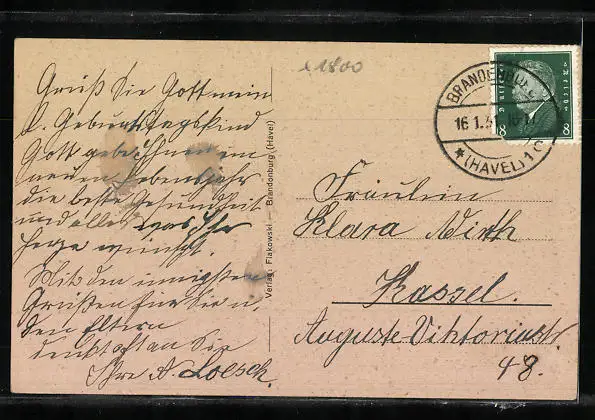 Grüß Sie Gott mein
l. Geburtstagskind
Gott geb Ihnen im
neuen Lebensjahr
die beste Gesundheit
und alles was Ihr
Herze wünscht.
Mit den innigsten
Grüßen für Sie u.
den Eltern
denkt oft an Sie
Ihre A. Loesch.
Verlag: Flakowski — Brandenburg (Havel)
1800
BRANDENBURG
16.1.31
* (HAVEL) 1
Deutsches Reich
8 8
Fräulein
Klara Wirth
Kassel.
Auguste-Viktoriastr.
48.